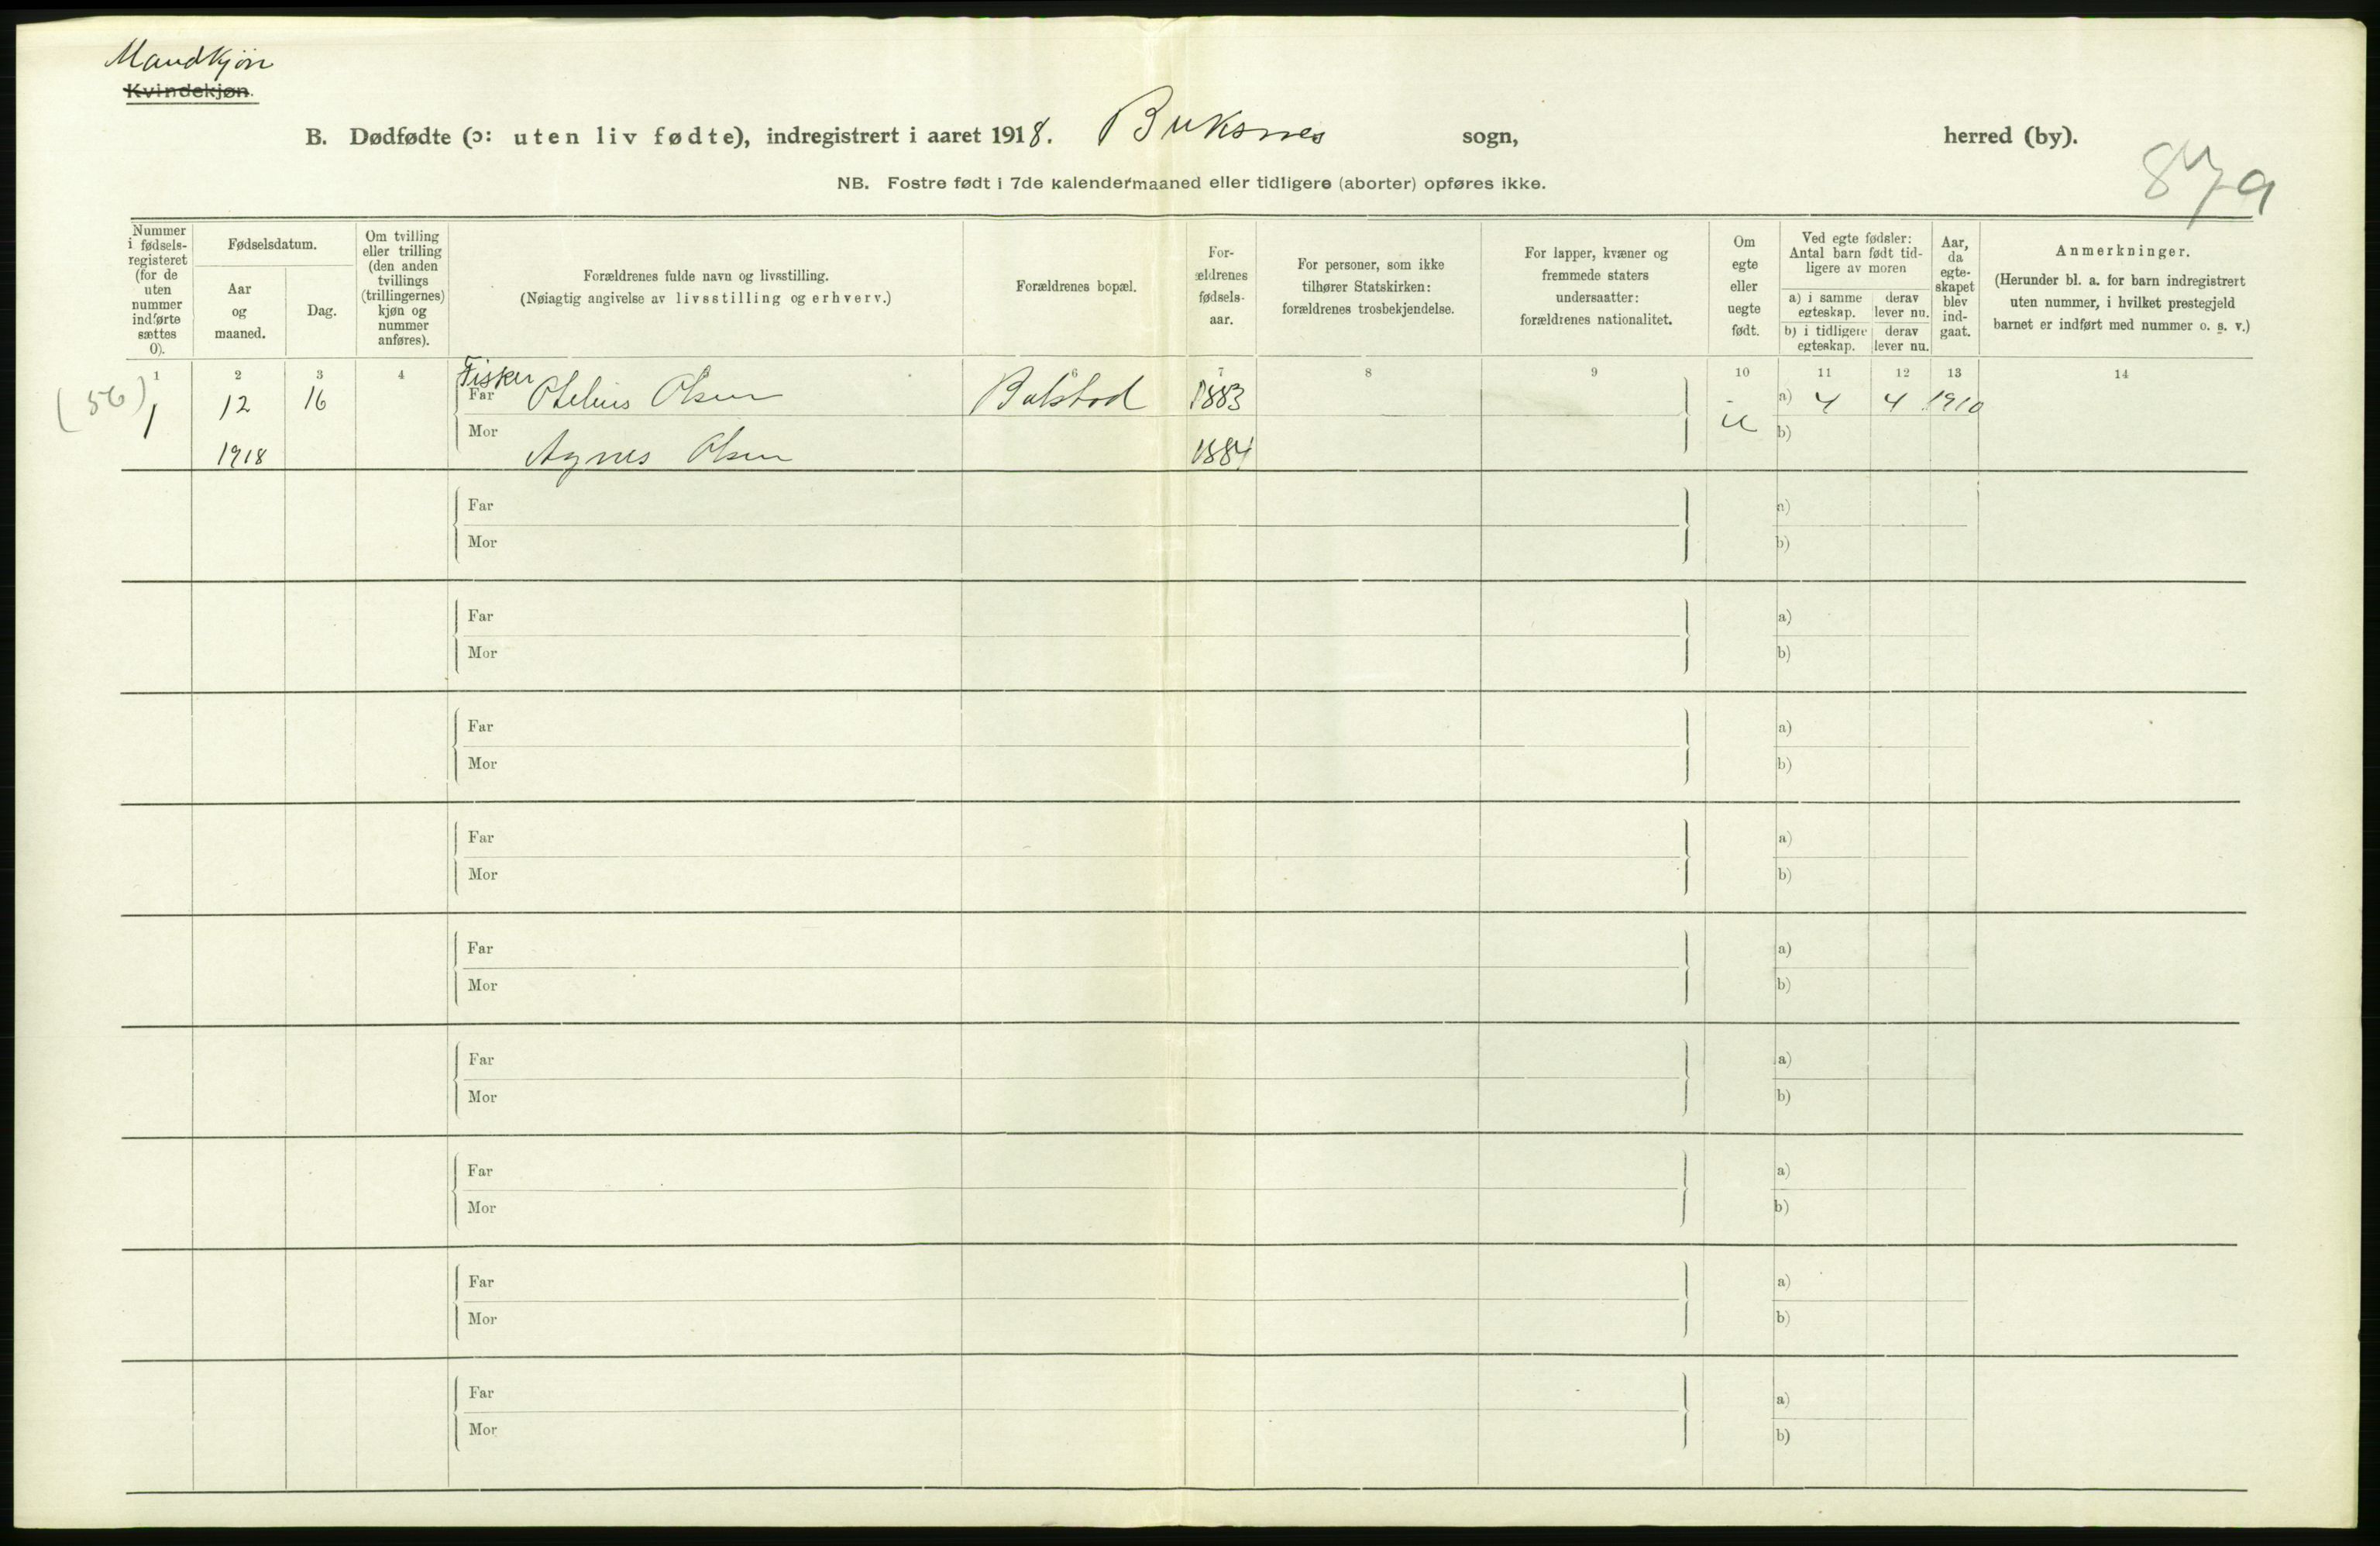 Mandkjøn
Kvindekjøn.
B. Dødfødte (ɔ: uten liv fødte), indregistrert i aaret 1918. Buksnes sogn, herred (by).
87a
NB. Fostre født i 7de kalendermaaned eller tidligere (aborter) opføres ikke.
Nummer i fødsels-registeret (for de uten nummer indførte sættes 0).
Fødselsdatum.
Aar og maaned.
Dag.
Om tvilling eller trilling (den anden tvillings (trillingernes) kjøn og nummer anføres).
Forældrenes fulde navn og livsstilling.
(Nøiagtig angivelse av livsstilling og erhverv.)
Forældrenes bopæl.
For-ældrenes fødsels-aar.
For personer, som ikke tilhører Statskirken: forældrenes trosbekjendelse.
For lapper, kvæner og fremmede staters undersaatter: forældrenes nationalitet.
Om egte eller uegte født.
Ved egte fødsler: Antal barn født tid-ligere av moren
a) i samme egteskap. derav lever nu.
b) i tidligere egteskap. derav lever nu.
Aar, da egte-skapet blev ind-gaat.
Anmerkninger.
(Herunder bl. a. for barn indregistrert uten nummer, i hvilket prestegjeld barnet er indført med nummer o. s. v.)
1 2 3 4 6 7 8 9 10 11 12 13 14
Fisker
(56) 1 12 16 Far Otelius Olsen Balstad 1883 a) 4 4 1910
Mor b)
1918 Agnes Olsen 1884
Far a)
Mor b)
Far a)
Mor b)
Far a)
Mor b)
Far a)
Mor b)
Far a)
Mor b)
Far a)
Mor b)
Far a)
Mor b)
Far a)
Mor b)
Far a)
Mor b)